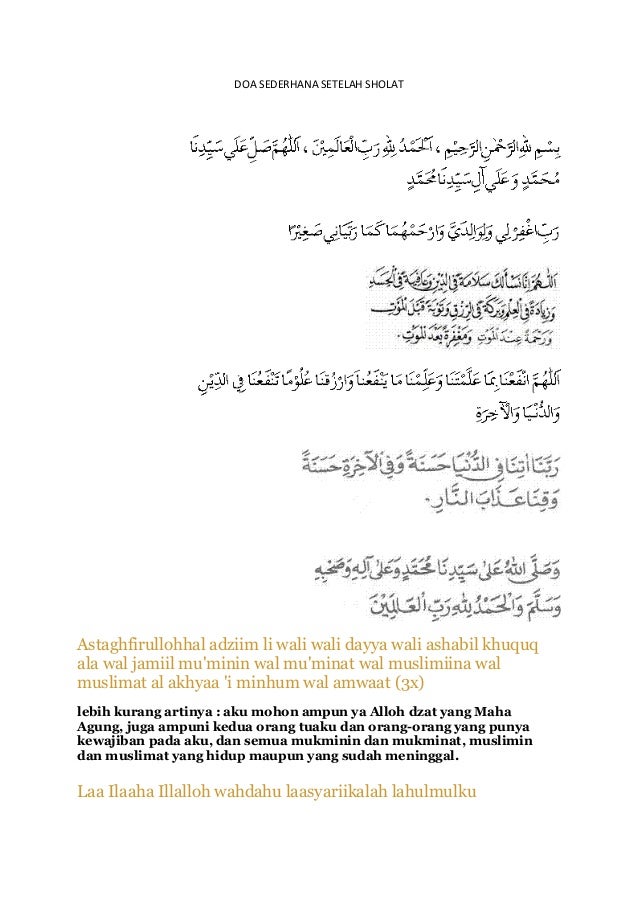 DOA SEDERHANA SETELAH SHOLAT
بِسْمِ اللهِ الرَّحْمٰنِ الرَّحِيْمِ ، اَلْحَمْدُ لِلّٰهِ رَبِّ الْعَالَمِيْنَ ، اَللّٰهُمَّ صَلِّ عَلَي سَيِّدِنَا
مُحَمَّدٍ وَ عَلَي آلِ سَيِّدِنَا مُحَمَّدٍ
رَبِّ اغْفِرْ لِي وَلِوَالِدَيَّ وَارْحَمْهُمَا كَمَا رَبَّيَانِي صَغِيْرًا
اَللّٰهُمَّ اِنَّا نَسْأَلُكَ سَلَامَةً فِي الدِّيْنِ وَعَافِيَةً فِي الْجَسَدِ
وَزِيَادَةً فِي الْعِلْمِ وَبَرَكَةً فِي الرِّزْقِ وَتَوْبَةً قَبْلَ الْمَوْتِ
وَرَحْمَةً عِنْدَ الْمَوْتِ وَمَغْفِرَةً بَعْدَ الْمَوْتِ.
اَللّٰهُمَّ انْفَعْنَا بِمَا عَلَّمْتَنَا وَعَلِّمْنَا مَا يَنْفَعُنَا وَارْزُقْنَا عُلُوْمًا تَنْفَعُنَا فِي الدِّيْنِ
وَالدُّنْيَا وَالْآخِرَةِ
رَبَّنَا اٰتِنَا فِي الدُّنْيَا حَسَنَةً وَفِي الْاٰخِرَةِ حَسَنَةً
وَقِنَا عَذَابَ النَّارِ.
وَصَلَّى اللهُ عَلَى سَيِّدِنَا مُحَمَّدٍ وَعَلَى آلِهِ وَصَحْبِهِ
وَسَلَّمَ وَالْحَمْدُ لِلّٰهِ رَبِّ الْعَالَمِيْنَ
Astaghfirullohhal adziim li wali wali dayya wali ashabil khuquq
ala wal jamiil mu'minin wal mu'minat wal muslimiina wal
muslimat al akhyaa 'i minhum wal amwaat (3x)
lebih kurang artinya : aku mohon ampun ya Alloh dzat yang Maha
Agung, juga ampuni kedua orang tuaku dan orang-orang yang punya
kewajiban pada aku, dan semua mukminin dan mukminat, muslimin
dan muslimat yang hidup maupun yang sudah meninggal.
Laa Ilaaha Illalloh wahdahu laasyariikalah lahulmulku